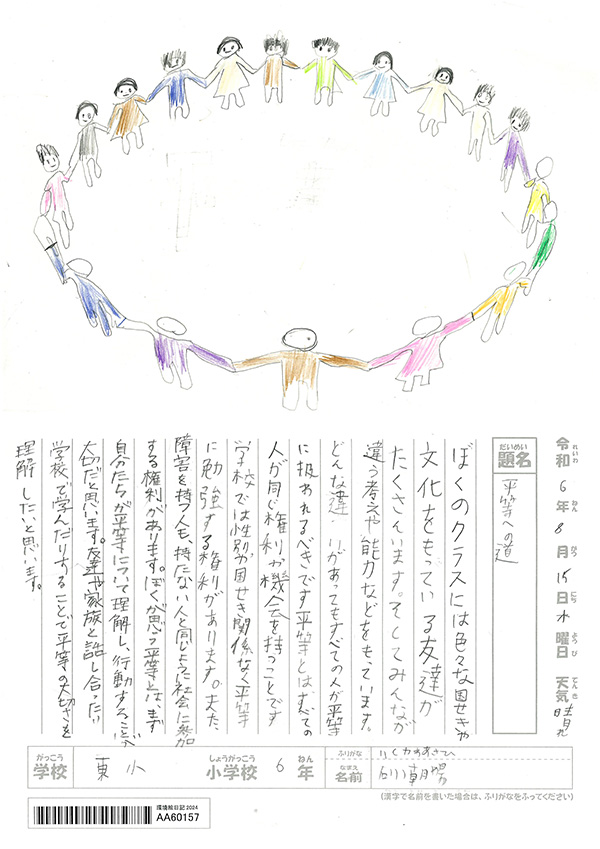 令和6年8月15日木曜日 天気 晴れ
れいわ ねん がつ にち ようび てんき
だいめい
題名 平等への道
ぼくのクラスには色々な国せきや
文化をもっている友達が
たくさんいます。そしてみんなが
違う考えや能力などをもっています。
どんな違いがあってもすべての人が平等
に扱われるべきです平等とはすべての
人が同じ権利や機会を持つことです
学校では性別や国せき関係なく平等
に勉強する権利があります。また、
障害を持つ人も、持たない人と同じように社会に参加
する権利があります。ぼくが思う平等とはまず
自分たちが平等について理解し、行動することが
大切だと思います。友達や家族と話し合ったり
学校で学んだりすることで平等の大切さを
理解したいと思います。
がっこう しょうがっこう ねん
学校 東小 小学校 6年
ふりがな
なまえ
名前 朝陽
(漢字で名前を書いた場合は、ふりがなをふってください)
環境絵日記2024
AA60157